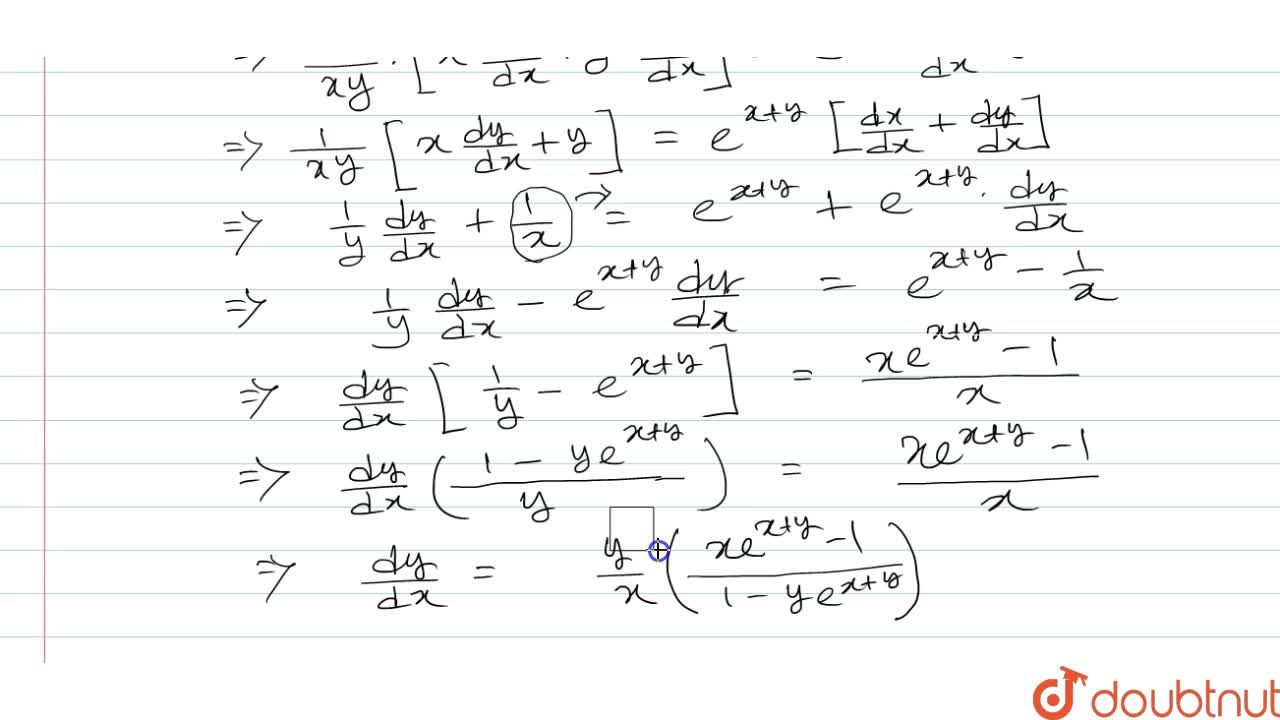 => 1/xy [x dy/dx y /dx] dx
=> 1/xy [x dy/dx + y] = e^(x+y) [dx/dx + dy/dx]
=> 1/y dy/dx + 1/x → = e^(x+y) + e^(x+y) · dy/dx
=> 1/y dy/dx - e^(x+y) dy/dx = e^(x+y) - 1/x
=> dy/dx [1/y - e^(x+y)] = (xe^(x+y) - 1)/x
=> dy/dx ((1 - ye^(x+y))/y) = (xe^(x+y) - 1)/x
=> dy/dx = y/x ((xe^(x+y) - 1)/(1 - ye^(x+y)))
doubtnut